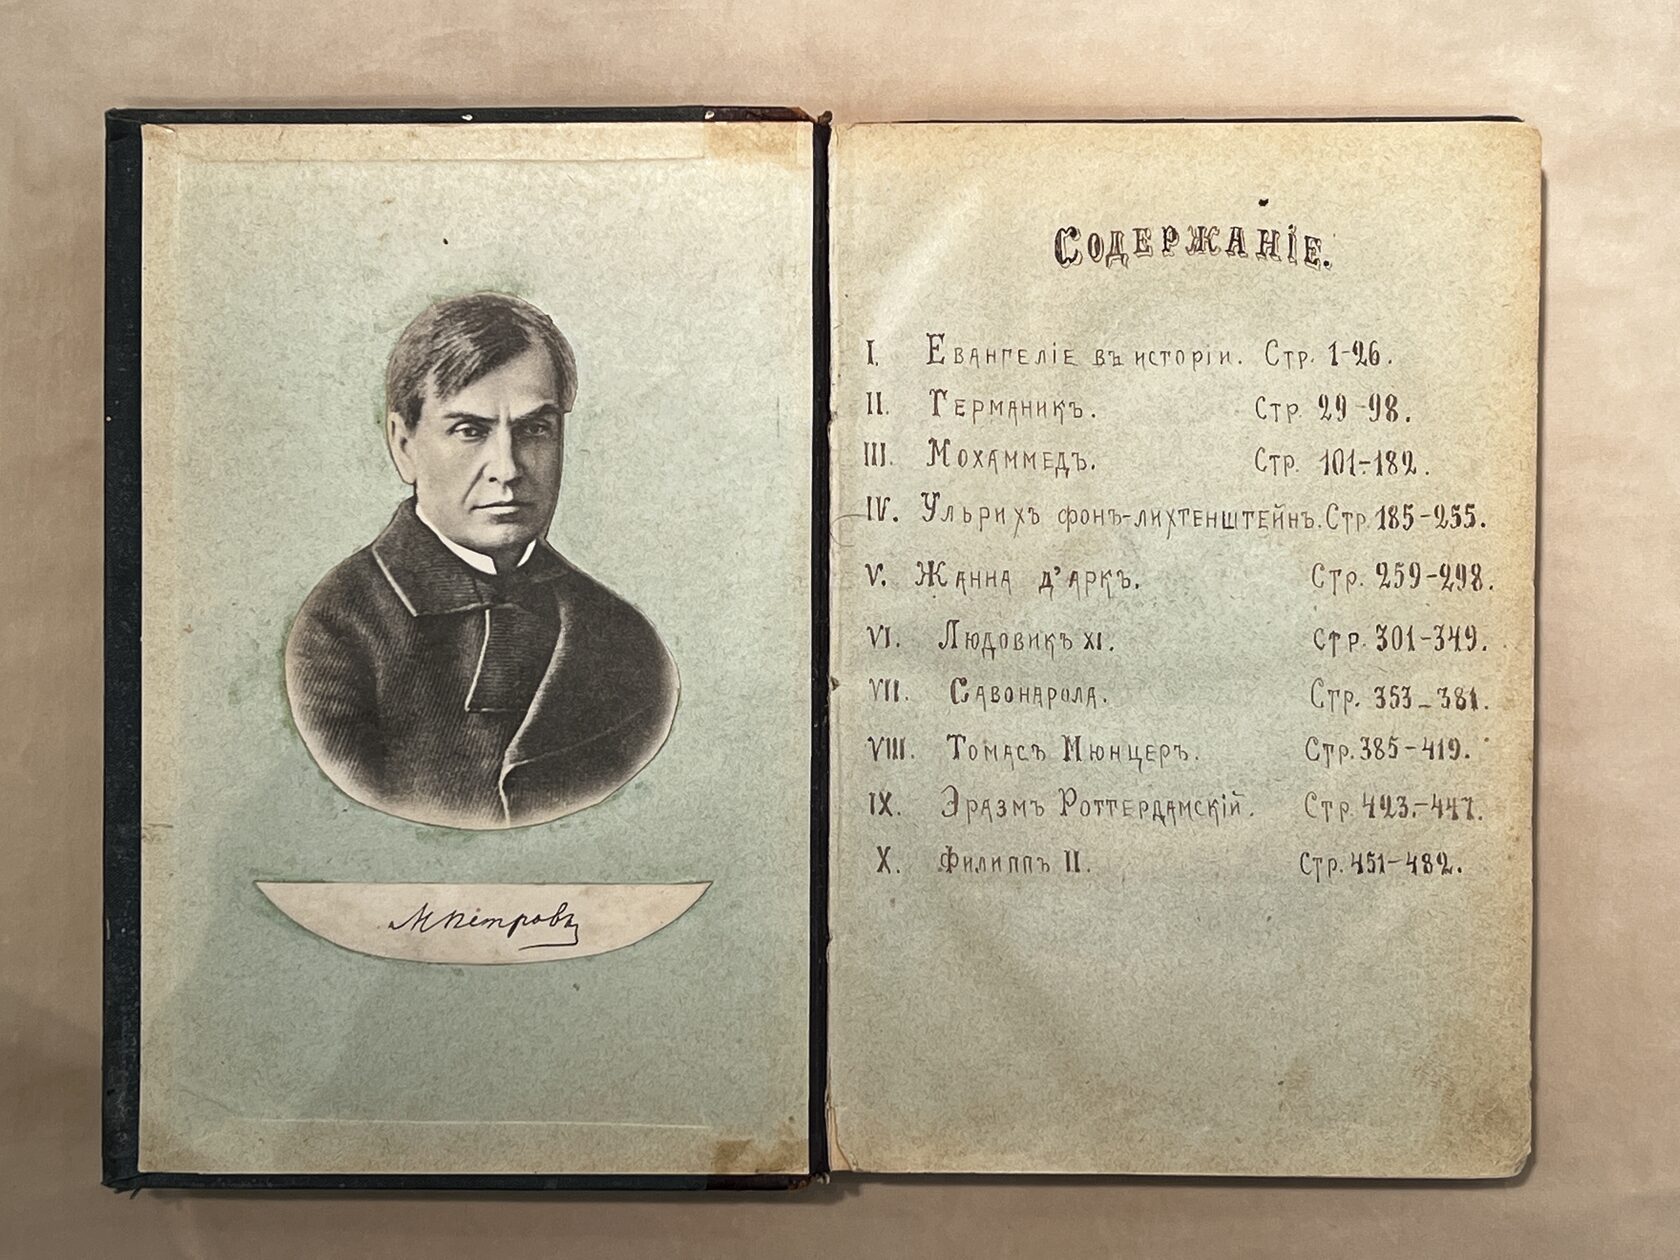 МПетровъ
Содержаніе.
I. Евангеліе въ исторіи. Стр. 1-26.
II. Германикъ. Стр 29-98.
III. Мохаммедъ. Стр. 101-182.
IV. Ульрихъ фонъ-лихтенштейнъ. Стр. 185-255.
V. Жанна д'аркъ. Стр. 259-298.
VI. Людовикъ XI. Стр. 301-349.
VII. Савонарола. Стр. 353-381.
VIII. Томасъ Мюнцеръ. Стр. 385-419.
IX. Эразмъ Роттердамскій. Стр 423.-447.
X. Филиппъ II. Стр. 451-482.